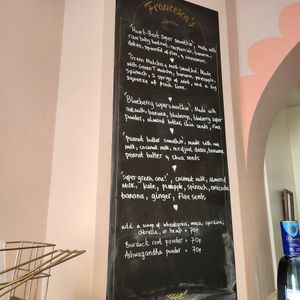 Francesca's
"Heart-Beet super smoothie", made with
raw baby beetroot, raspberries, banana,
dates, spoonful of flax, & cinnamon.
"Green Matcha" milk smoothie. Made
with Green T matcha, banana, pineapple,
spinach, 2 sprigs of mint, and a big
squeeze of fresh lime.
"Blueberry supersmoothie". Made with
oat milk, banana, blueberries, blueberry super
powder, almond butter, chia seeds, flax
'peanut butter smoothie', made with oat
milk, coconut milk, medjool dates, banana,
peanut butter & chia seeds
'super green one!', coconut milk, almond
milk, kale, pineapple, spinach, avocado
banana, ginger, flax seeds
add a scoop of wheatgrass, maca, spirulina,
chlorella, or hemp + 70p
Burdock root powder + 70p
Ashwagandha powder + 70p